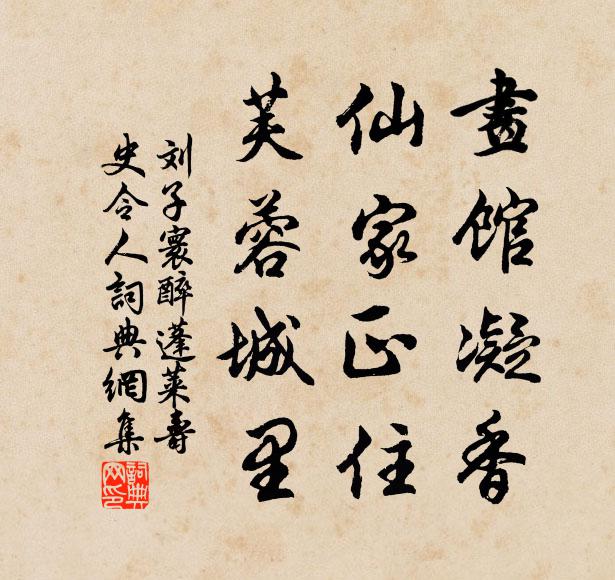 畫館凝香
仙家正住
芙蓉城里
刘子寰醉蓬萊壽
史令人詞典網集
詞典网印